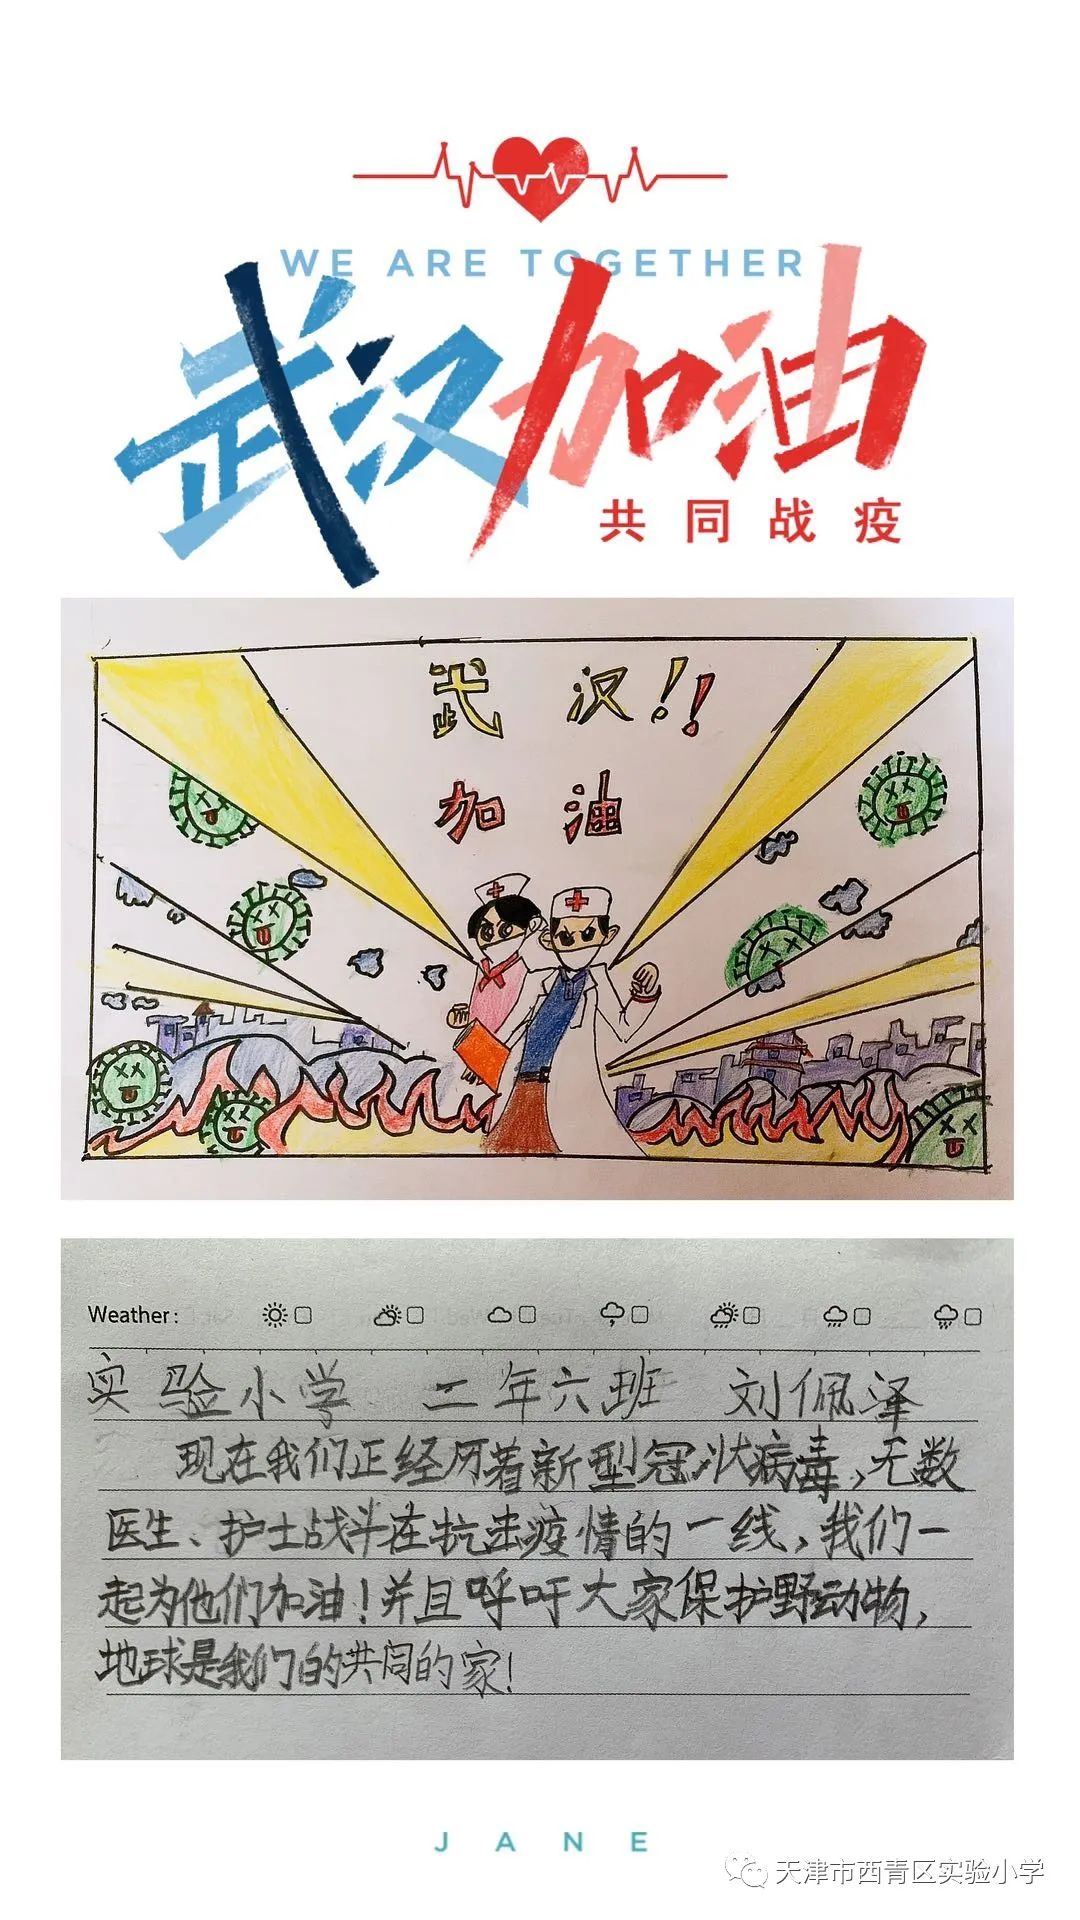 WE ARE TOGETHER
武汉加油
共同战疫
武汉!!
加油
Weather:
实验小学 二年六班 刘佩泽
现在我们正经历着新型冠状病毒,无数
医生、护士战斗在抗击疫情的一线,我们一
起为他们加油!并且呼吁大家保护野动物,
地球是我们的共同的家!
JANE
天津市西青区实验小学